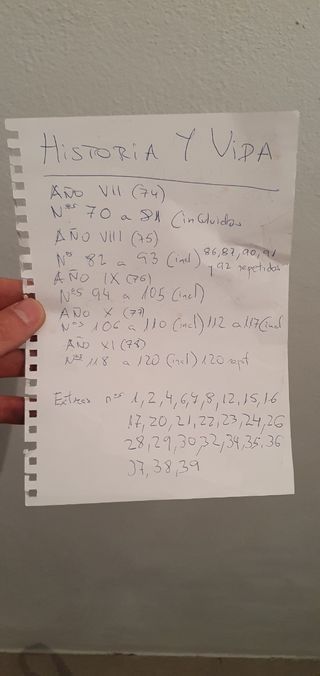 HISTORIA Y VIDA
AÑO VII (74)
Nºs 70 a 81 (incluidos
AÑO VIII (75)
Nºs 82 a 93 (incl) 86, 87, 90, 91
y 92 repetidos
AÑO IX (76)
Nºs 94 a 105 (incl)
AÑO X (77)
Nºs 106 a 110 (incl) 112 a 117 (incl
AÑO XI (78)
Nºs 118 a 120 (incl) 120 rept
Extras nºs 1, 2, 4, 6, 7, 8, 12, 15, 16
17, 20, 21, 22, 23, 24, 26
28, 29, 30, 32, 34, 35, 36
37, 38, 39